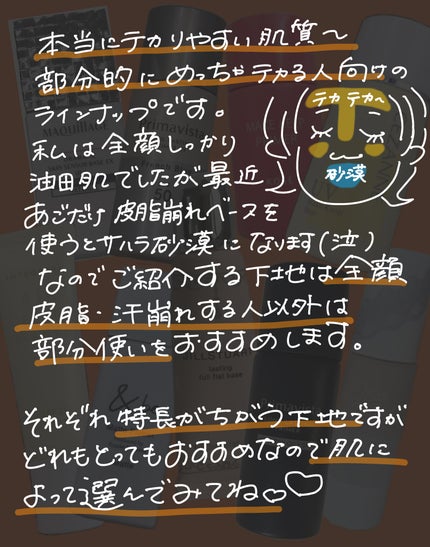 本当にテカりやすい肌質〜
部分的にめっちゃテカる人向けの
ラインナップです。
私は全顔しっかり
油田肌でしたが最近
あごだけ皮脂崩れベースを
使うとサハラ砂漠になります(泣)
なのでご紹介する下地は全顔
皮脂・汗崩れする人以外は
部分使いをおすすめします。
テカテカ〜
砂漠
それぞれ特長がちがう下地ですが
どれもとってもおすすめなので肌に
よって選んでみてね♡♡
MAQUILLAGE
Primavista
50
JILL STUART
lasting